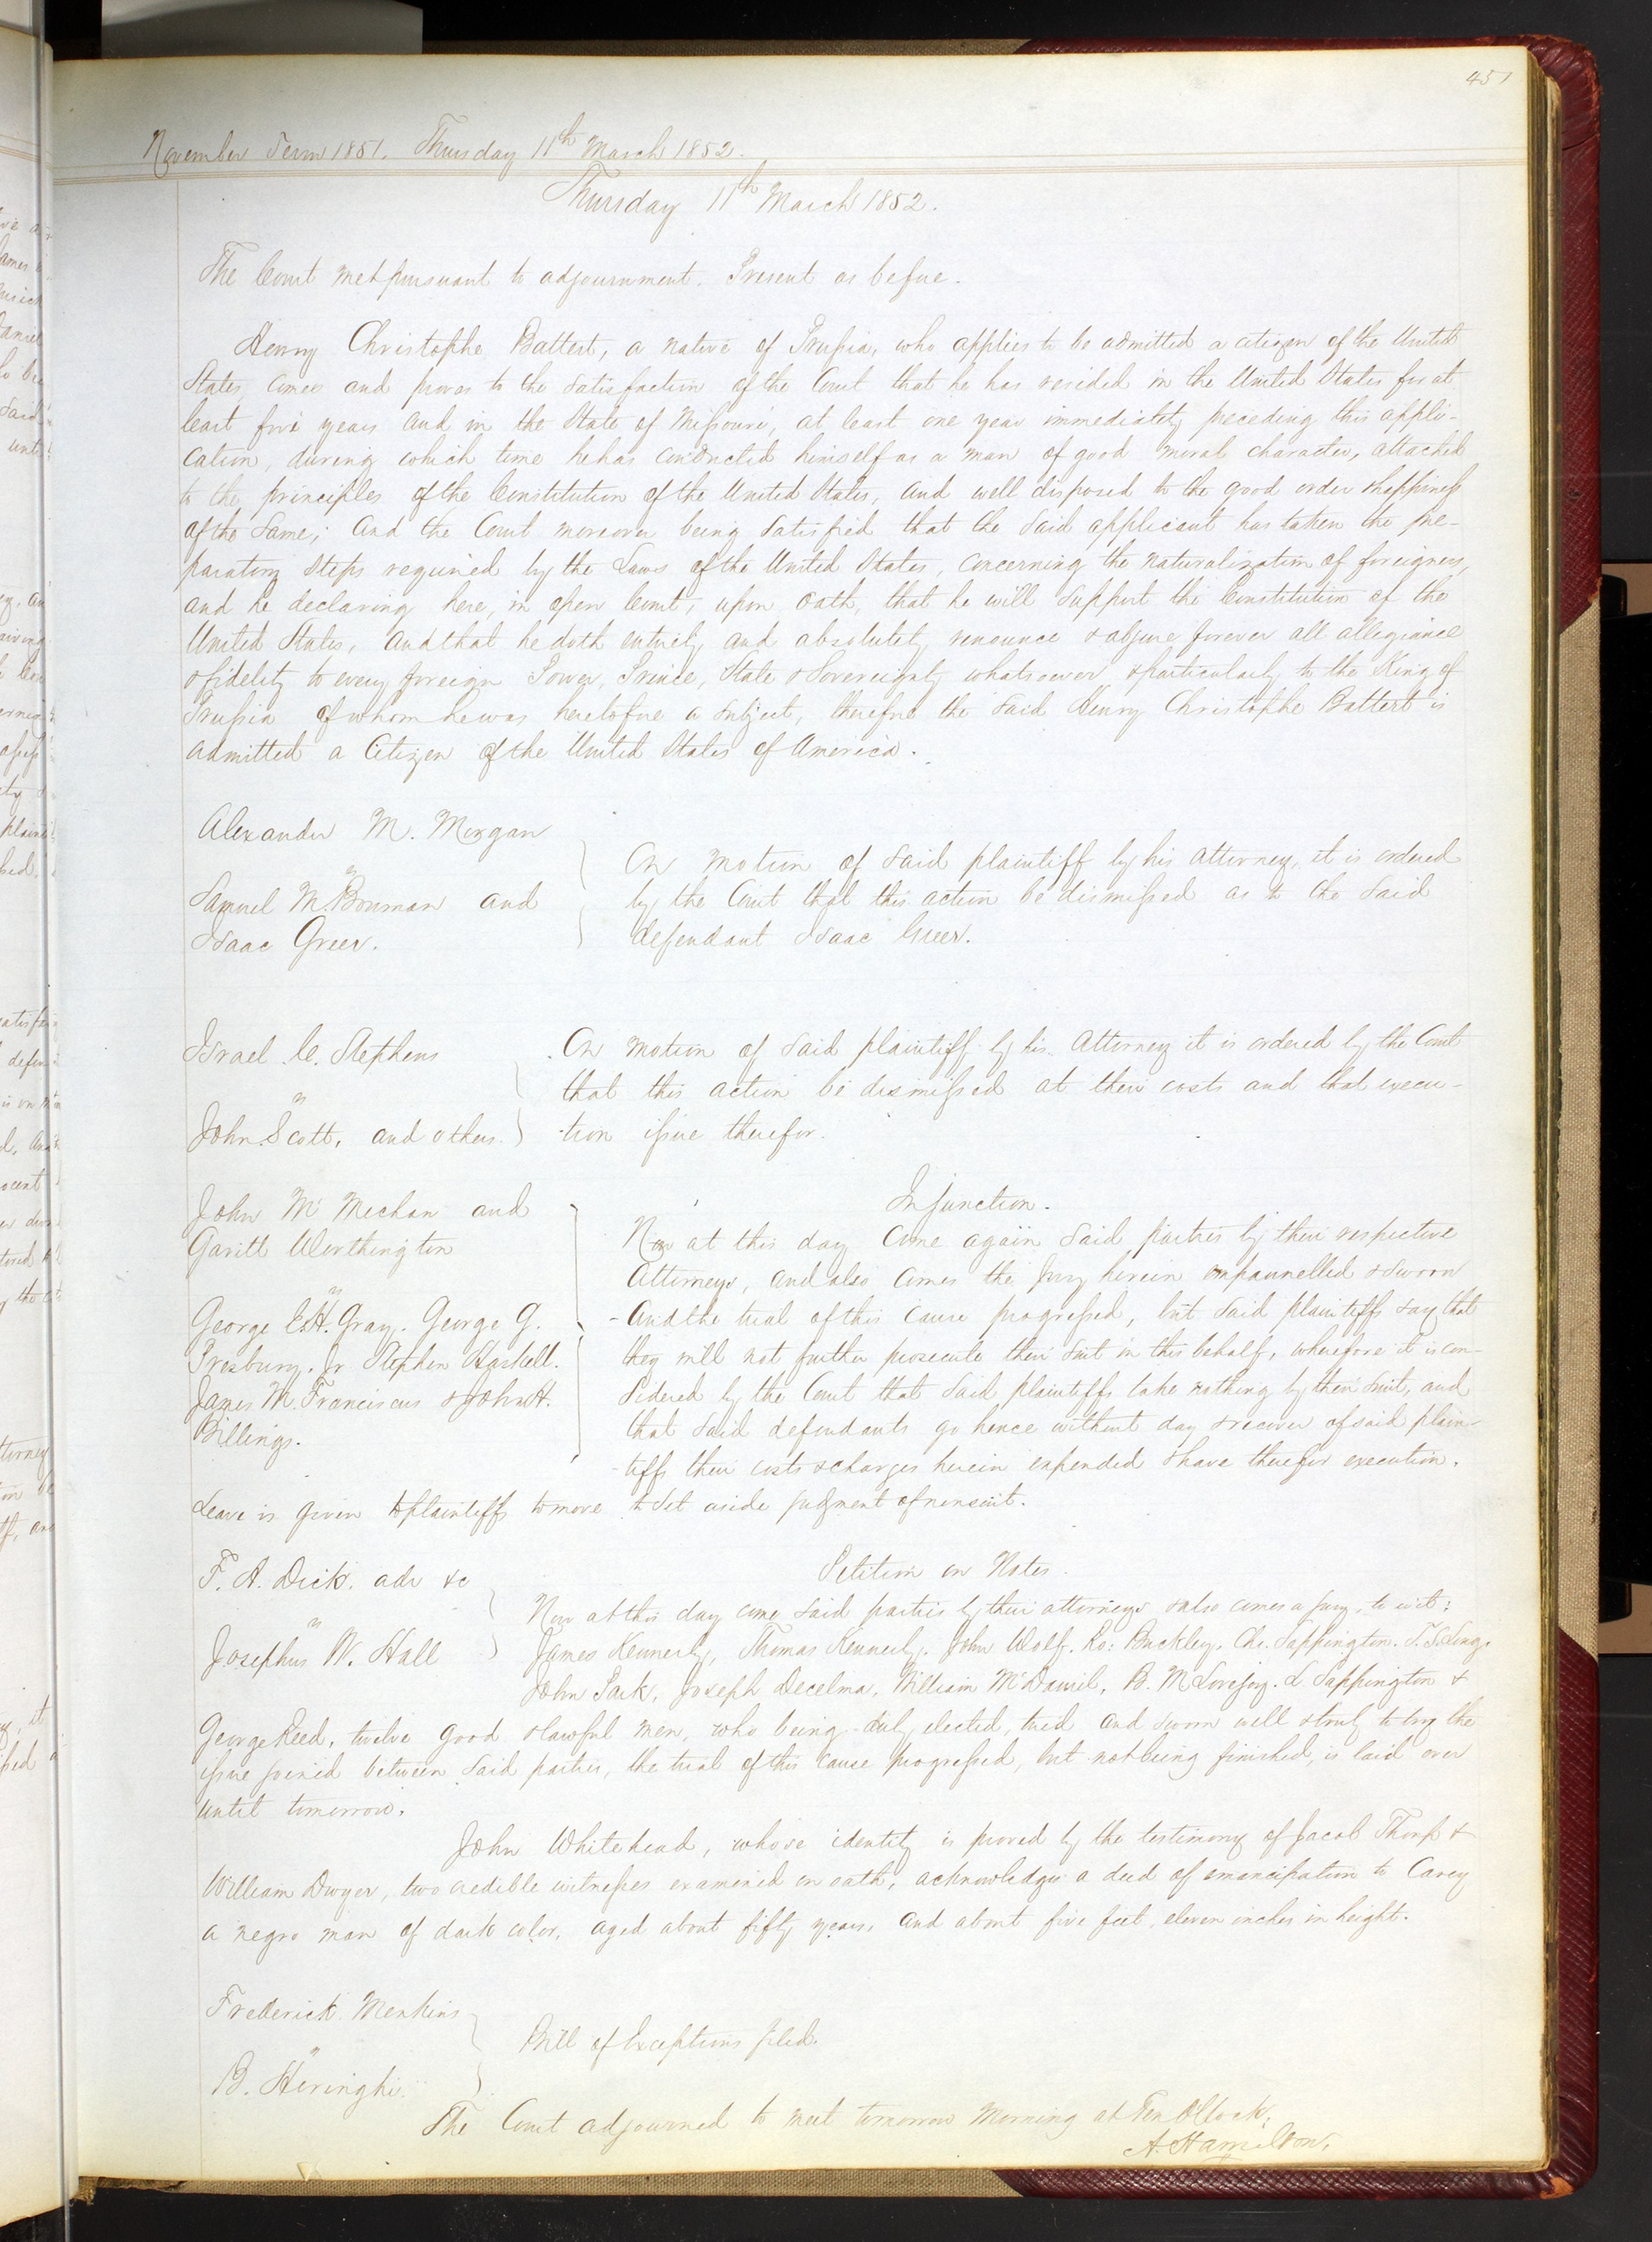 451
November Term 1851. Thursday 11th March 1852.
Thursday 11th March 1852.
The Court met pursuant to adjournment. Present as before.
Henry Christophe Battert, a native of Prussia, who applies to be admitted a citizen of the United
States, comes and proves to the satisfaction of the Court that he has resided in the United States for at
least five years and in the State of Missouri, at least one year immediately preceding this appli-
cation, during which time he has conducted himself as a man of good moral character, attached
to the principles of the Constitution of the United States, and well disposed to the good order & happiness
of the same; and the Court moreover being satisfied that the said applicant has taken the pre-
paratory steps required by the Laws of the United States, concerning the naturalization of foreigners,
and he declaring here, in open Court, upon oath, that he will support the Constitution of the
United States, and that he doth entirely and absolutely renounce & abjure forever all allegiance
& fidelity to every foreign Power, Prince, State & Sovereignty whatsoever & particularly to the King of
Prussia of whom he was heretofore a subject, therefore the said Henry Christophe Battert is
admitted a Citizen of the United States of America.
Alexander M. Morgan
vs
Samuel M. Bowman and
Isaac Greer.
On motion of said plaintiff by his attorney, it is ordered
by the Court that this action be dismissed as to the said
defendant Isaac Greer.
Israel C. Stephens
vs
John Scott, and others.
On motion of said plaintiff by his Attorney it is ordered by the Court
that this action be dismissed at their costs and that execu-
tion issue therefor.
John Mc Mechan and
Garitt Worthington
vs
George E.H. Gray. George G.
Presbury. Jr Stephen Haskell.
James M. Franciscus & John H.
Billings.
Injunction.
Now at this day come again said parties by their respective
Attorneys, and also comes the Jury herein empannelled & sworn
And the trial of this cause progressed, but said plaintiffs say that
they will not further prosecute their suit in this behalf, wherefore it is con-
sidered by the Court that said plaintiffs take nothing by their suit, and
that said defendants go hence without day & recover of said plain-
tiffs their costs & charges herein expended & have therefor execution.
Leave is given to plaintiffs to move to set aside judgment of nonsuit.
F. A. Dick. adr &c
vs
Josephus W. Hall
Petition on Notes.
Now at this day come said parties by their attorneys & also comes a jury, to wit:
James Kennerly, Thomas Kennerly. John Wolf. Ro: Buckley. Chs. Sappington. Long.
John Park, Joseph Decelma, William McDaniel, B. M Lovejoy. L. Sappington &
George Reed, twelve good & lawful men, who being duly elected, tried and sworn well & truly to try the
issue joined between said parties, the trial of this cause progressed, but not being finished, is laid over
until tomorrow.
John Whitehead, whose identity is proved by the testimony of Jacob Thorp &
William Dwyer, two credible witnesses examined on oath, acknowledges a deed of emancipation to Carey
a negro man of dark color, aged about fifty years, and about five feet, eleven inches in height.
Frederick Menkins
vs
B. Heringhi.
Bill of Exceptions filed.
The Court adjourned to meet tomorrow morning at Ten OClock.
A. Hamilton,